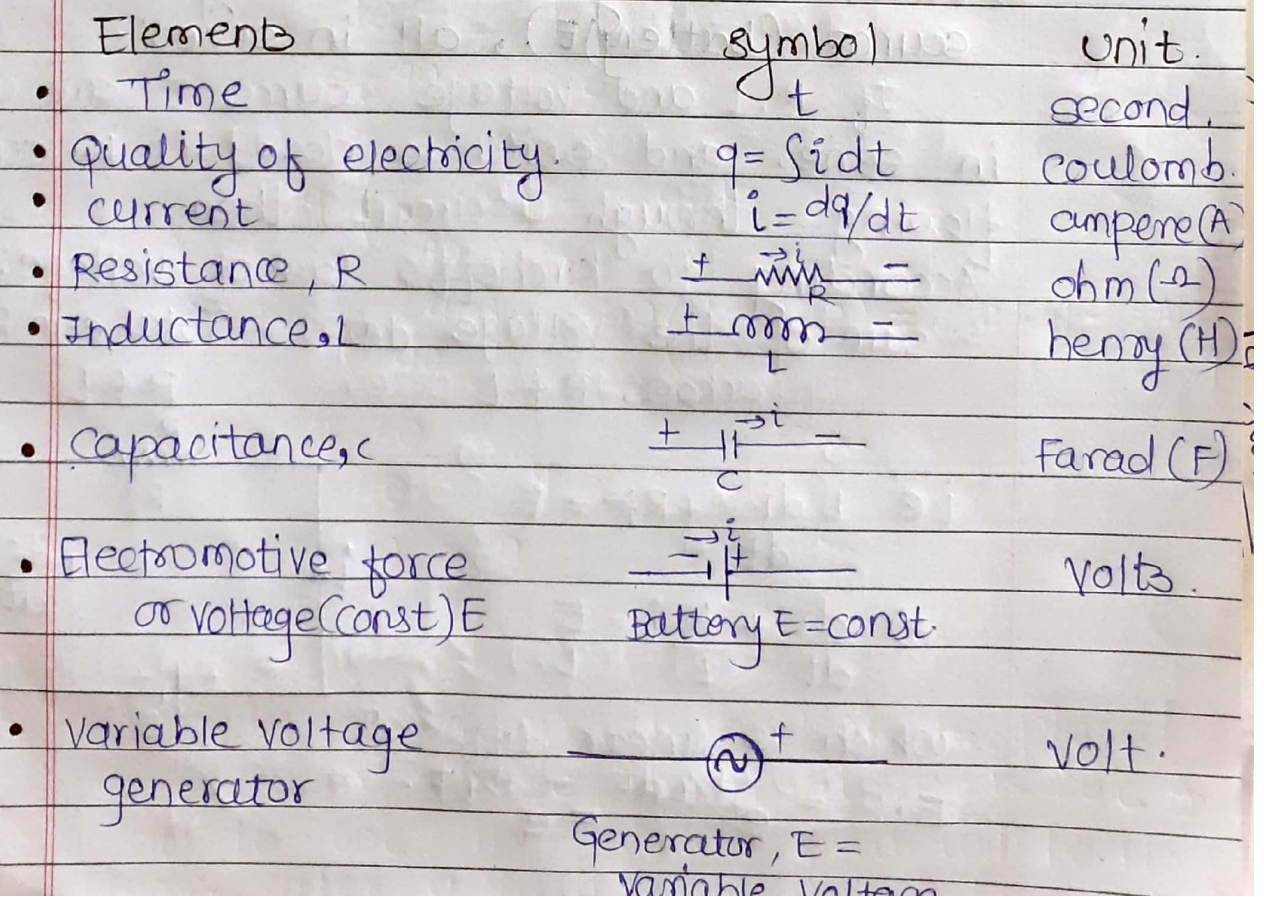 Elements symbol unit.
• Time t second.
• Quality of electricity. q = ∫idt coulomb.
• current i = dq/dt ampere(A)
• Resistance, R + → i R - ohm (Ω)
• Inductance, L + L - henry (H)
• capacitance, c + → i C - Farad (F)
• Electromotive force → i - + volts.
or voltage(const) E Battery E = const.
• variable voltage + volt.
generator
Generator, E =
variable voltage